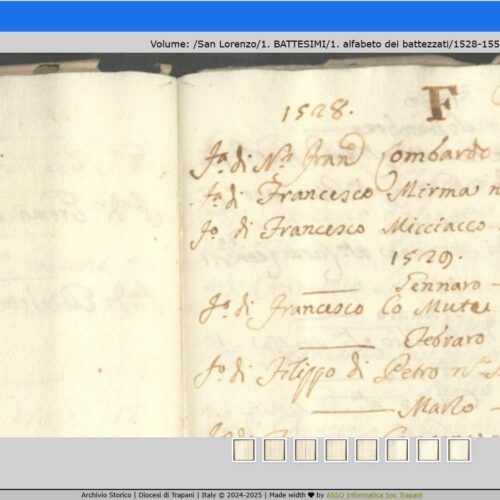 Volume: /San Lorenzo/1. BATTESIMI/1. alfabeto dei battezzati/1528-155
1528. F
Ja. di Na. Fran Combardo
fa. di Francesco Mirma n
Jo. di Francesco Micciacco
1529.
Gennaro
Jo. di Francesco Co Mute
Febraro
Jo. di Filippo di Petro n
Marzo
Archivio Storico | Diocesi di Trapani | Italy © 2024-2025 | Made width ♥ by ASSO Informatica Snc Trapani